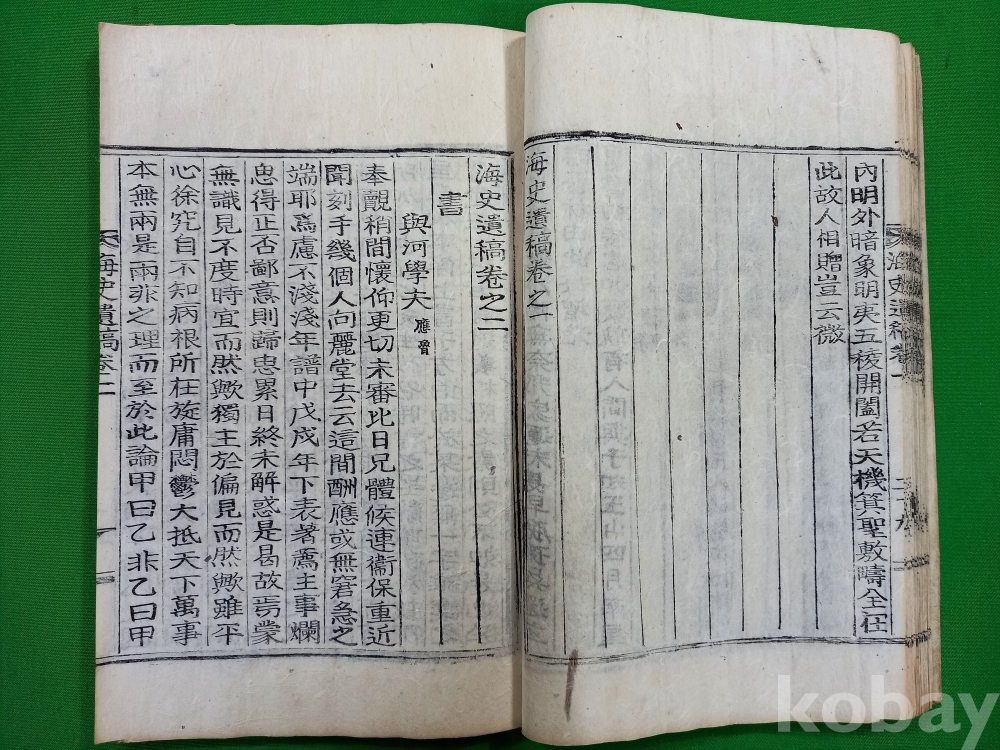 內明外暗象明夷五稜開闔若天機箕聖敷疇全在
此故人相贈豈云微
海史遺稿卷之一
海史遺稿卷之二
書
與河學夫 應魯
奉覿稍間懷仰更切未審比日兄體候連衛保重近
聞刻手幾個人向麗堂去云這間酬應或無窘急之
端耶爲慮不淺淺年譜中戊戌年下表著爲主事爛
思得正否鄙意則歸忠累日終未解惑是曷故焉蒙
無識見不度時宜而然歟獨主於偏見而然歟雖平
心徐究自不知病根所在旋庸悶鬱大抵天下萬事
本無兩是兩非之理而至於此論甲曰乙非乙曰甲
海史遺稿卷一
三十九
海史遺稿卷二
一
kobay